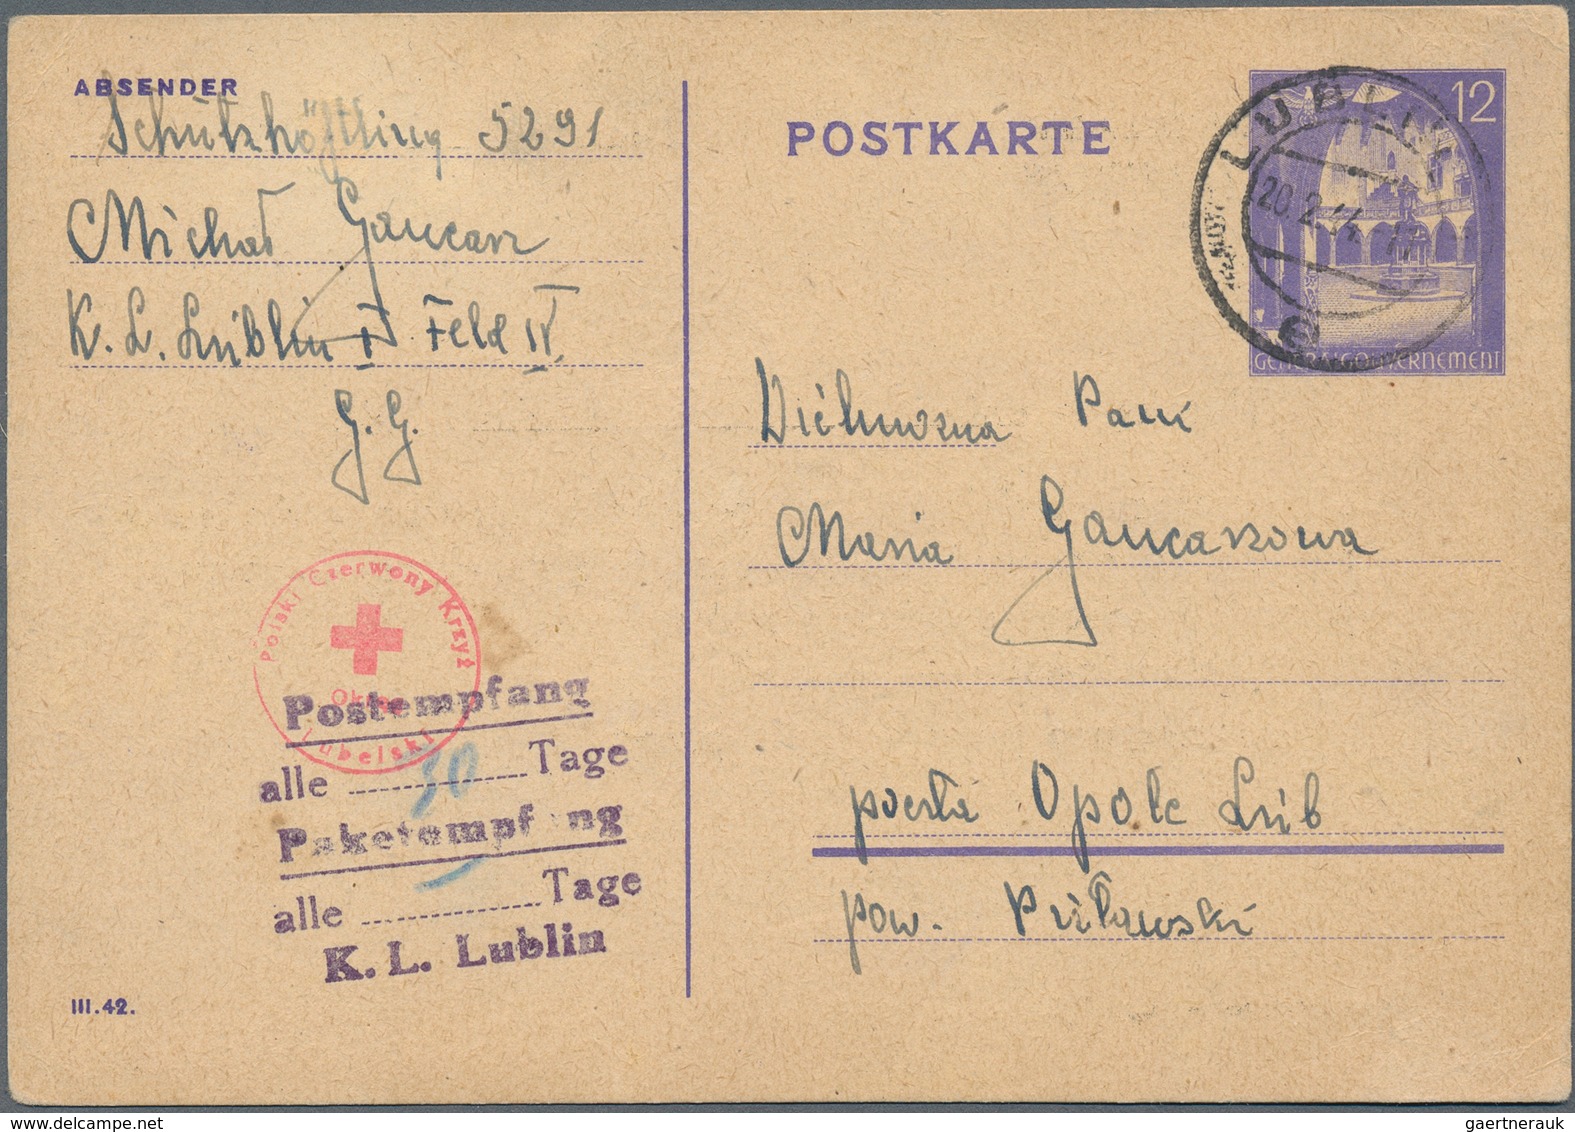 ABSENDER
Schutzhäftling 5291
Michał Gancarz
K. L. Lublin I Feld IV
G. G.
Polski Czerwony Krzyż
Lubelski
Postempfang
alle 30 Tage
Paketempfang
alle Tage
K. L. Lublin
III.42.
POSTKARTE
12
LUBLIN
20.2.44
e
GENERALGOUVERNEMENT
Wielmożna Pani
Maria Gancarzowa
poczta Opole Lub
pow. Puławski
gaertnerauk